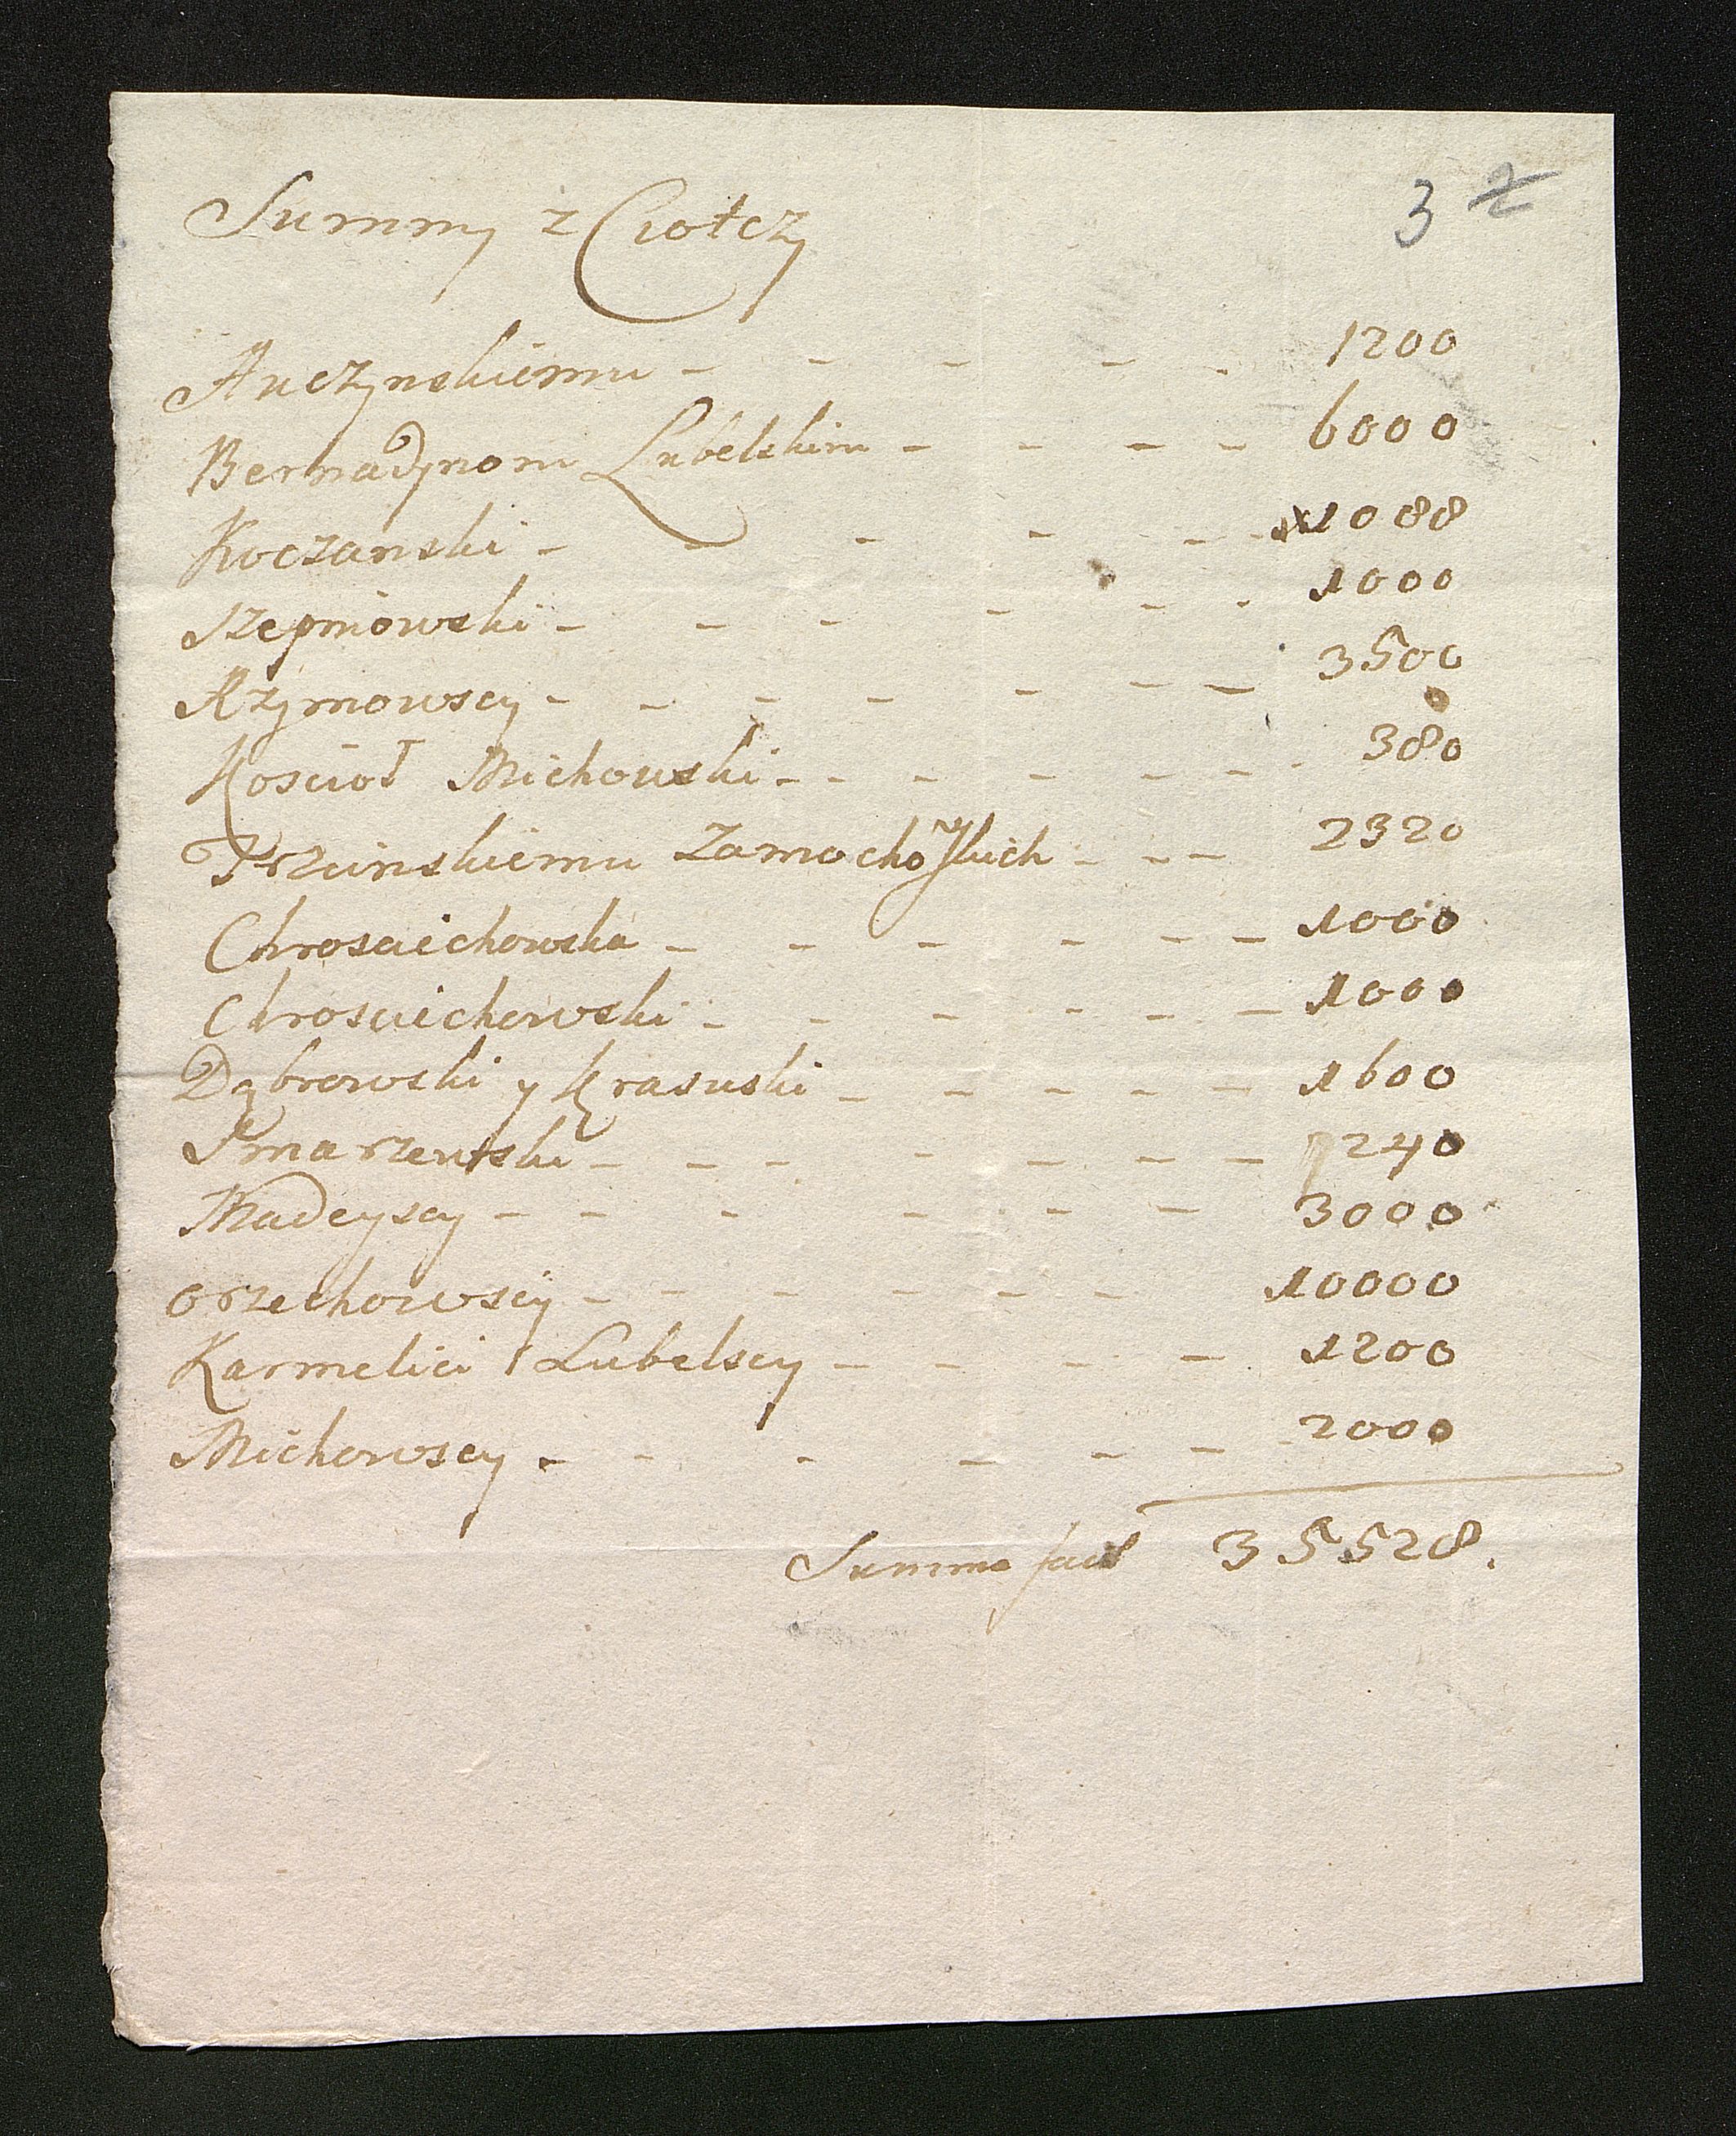 Summy z Ciołczy
3 2
Auczynskiemu - - - - - 1200
Bernadynom Lubelskim - - - - 6000
Koczanski - - - - - - 1088
Szepniowski - - - - - - 1000
Rzymowscy - - - - - - - 3500
Koscioł Michowski - - - - - - - 380
Trzcinskiemu Zamochoskich - - - 2320
Chrosciechowska - - - - - - 1000
Chrosciechowski - - - - - - 1000
Dąbrowski y Krasuski - - - - - 1600
Smarzewski - - - - - - - 1240
Madeyscy - - - - - - 3000
Orzechowscy - - - - - - 10000
Karmelici Lubelscy - - - - 1200
Michowscy - - - - - - 2000
Summa facit 35528.